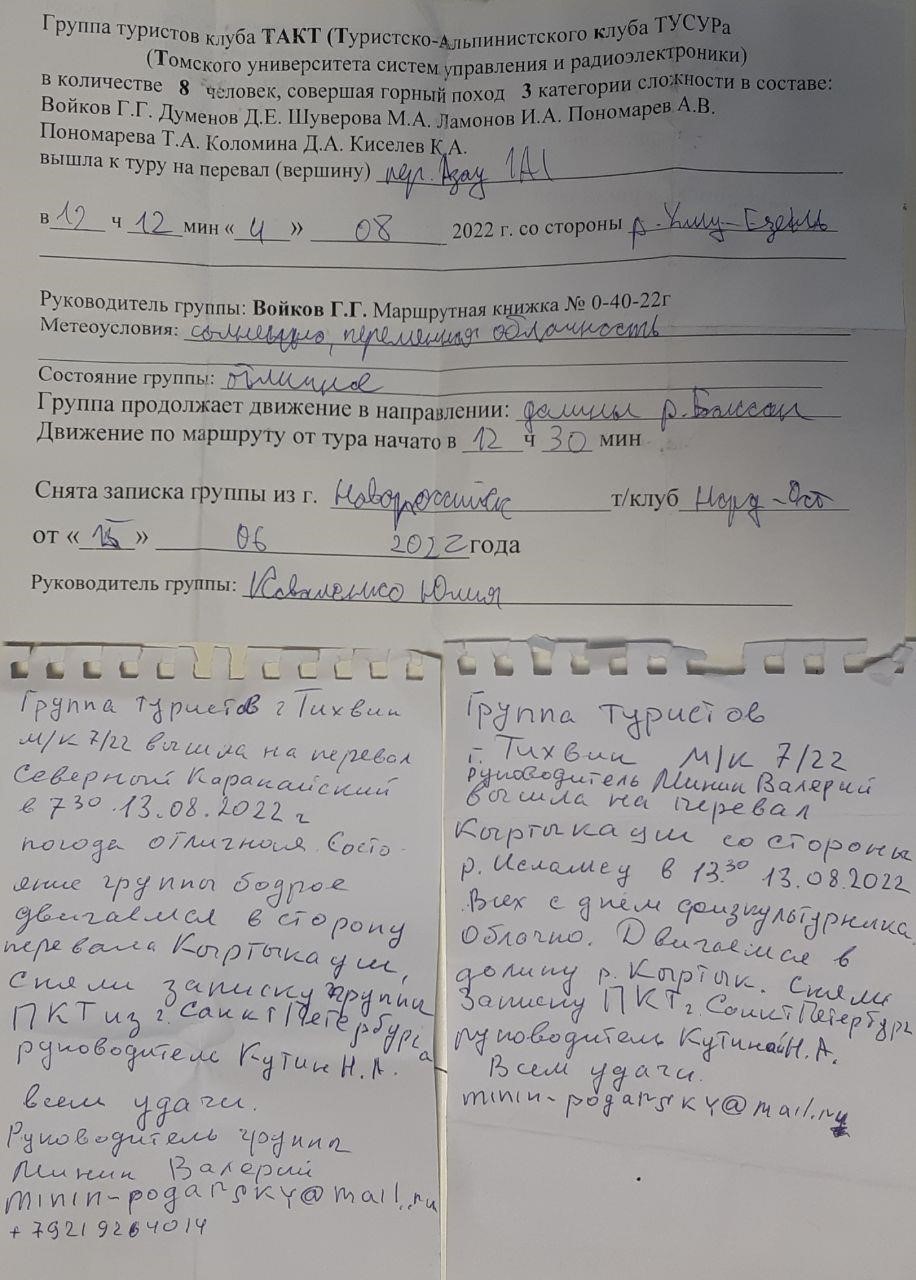 Группа туристов клуба ТАКТ (Туристско-Альпинистского клуба ТУСУРа
(Томского университета систем управления и радиоэлектроники)
в количестве 8 человек, совершая горный поход 3 категории сложности в составе:
Войков Г.Г. Думенов Д.Е. Шуверова М.А. Ламонов И.А. Пономарев А.В.
Пономарева Т.А. Коломина Д.А. Киселев К.А.
вышла к туру на перевал (вершину) пер. Азау 1А
в 12 ч 12 мин « 4 » 08 2022 г. со стороны р. Уллу-Езень
Руководитель группы: Войков Г.Г. Маршрутная книжка № 0-40-22г
Метеоусловия: солнечно, переменная облачность
Состояние группы: отличное
Группа продолжает движение в направлении: долины р. Баксан
Движение по маршруту от тура начато в 12 ч 30 мин
Снята записка группы из г. Новороссийск т/клуб Норд-Ост
от « 15 » 06 2022 года
Руководитель группы: Коваленко Юлия
Группа туристов г Тихвин
м/к 7/22 вышла на перевал
Северный Каракайский
в 7 30 13.08.2022 г
погода отличная. Состо-
яние группы бодрое
двигаемся в сторону
перевала Кыртыкауш,
сняли записку группы
ПКТ из г. Санкт Петербурга
руководитель Кутин Н.А.
всем удачи.
Руководитель группы
Минин Валерий
minin-podarsky@mail.ru
+79219264014
Группа туристов
г. Тихвин М/К 7/22
руководитель Минин Валерий
вышла на перевал
Кыртыкауш со стороны
р. Исламсу в 13.30 13.08.2022
Всех с днём физкультурника.
Облачно. Двигаемся в
долину р. Кыртык. Сняли
Записку ПКТ г. Санкт Петербург
руководитель Кутина Н.А.
Всем удачи.
minin-podarsky@mail.ru